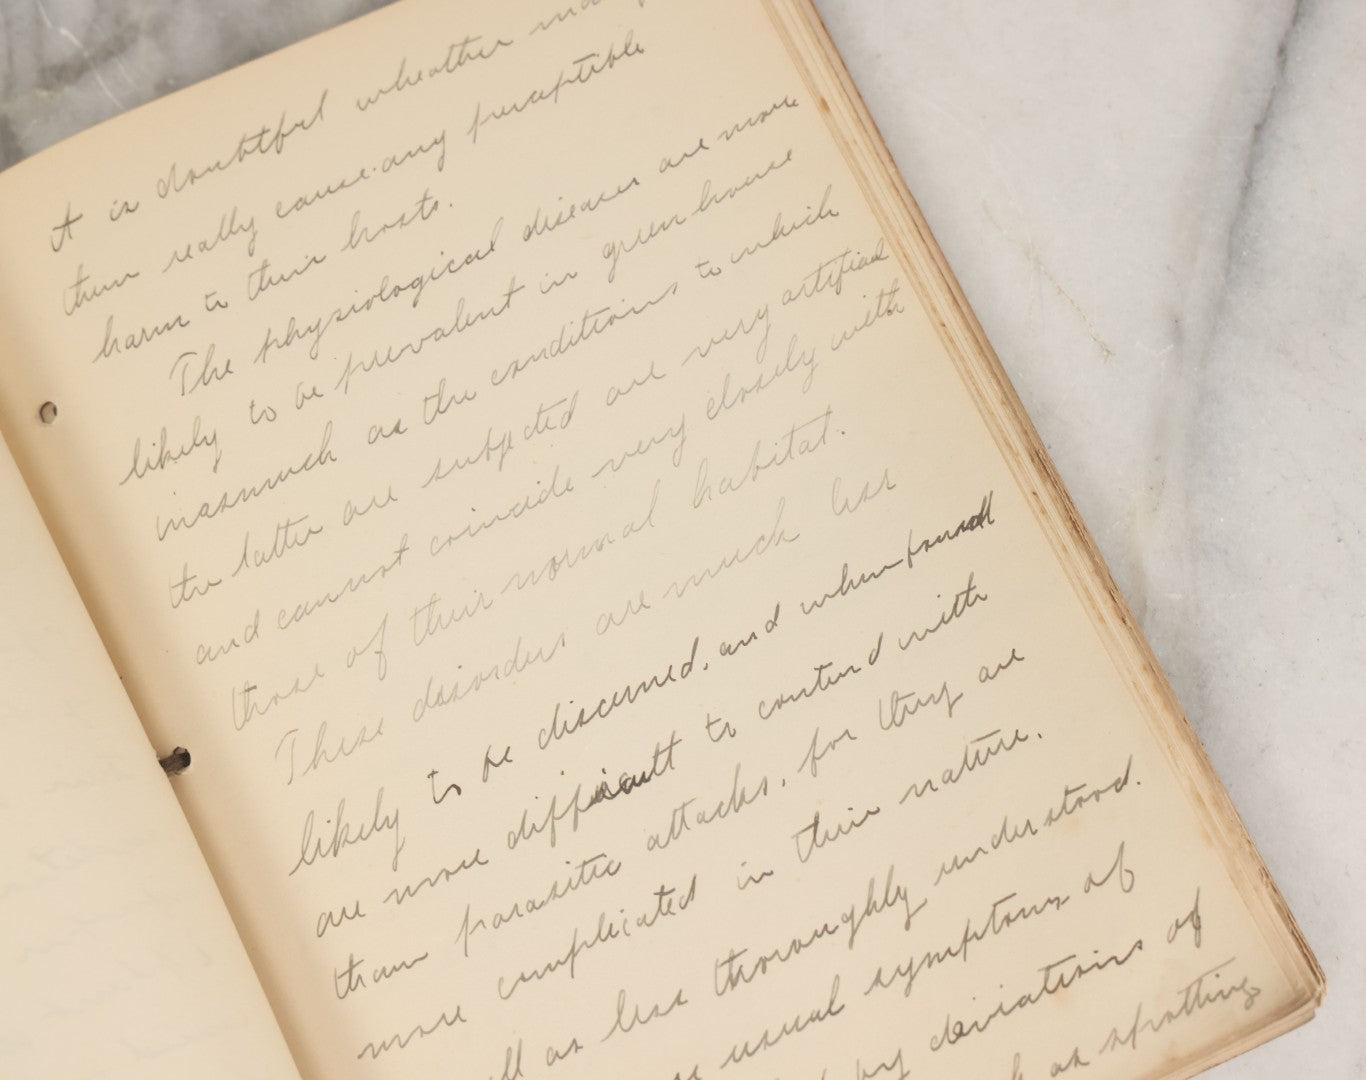 it is doubtful wheather many
them really cause any perceptible
harm to their hosts.
The physiological diseases are more
likely to be prevalent in green house
inasmuch as the conditions to which
the latter are subjected are very artificial
and cannot coincide very closely with
those of their normal habitat.
These disorders are much less
likely to be discerned, and when found
are more difficult to contend with
than parasitic attacks, for they are
more complicated in their nature.
as less thoroughly understood.
usual symptoms of
by deviations of
as spotting